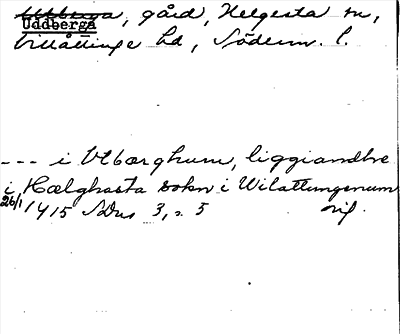 Utberga, gård, Helgesta sn,
Uddberga
Villåttinge hd, Söderm. l.
--- i Vtbærghum, liggiandhe
i Hælghasta sokn i Wilattungxnum
26/1 1415 SDns 3, s. 5 orig.